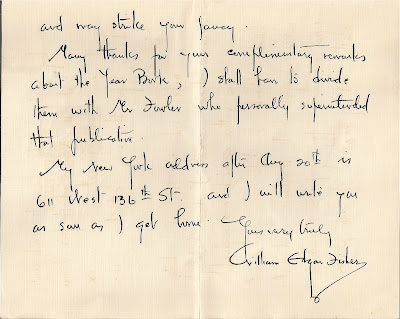 and may strike your fancy.
Many thanks for your complimentary remarks
about the Year Book, I shall have to divide
them with Mr Fowler who personally superintended
that publication.
My New York address after Aug 20th is
611 West 136th St- and I will write you
as soon as I get home.
Yours very truly
William Edgar Fisher